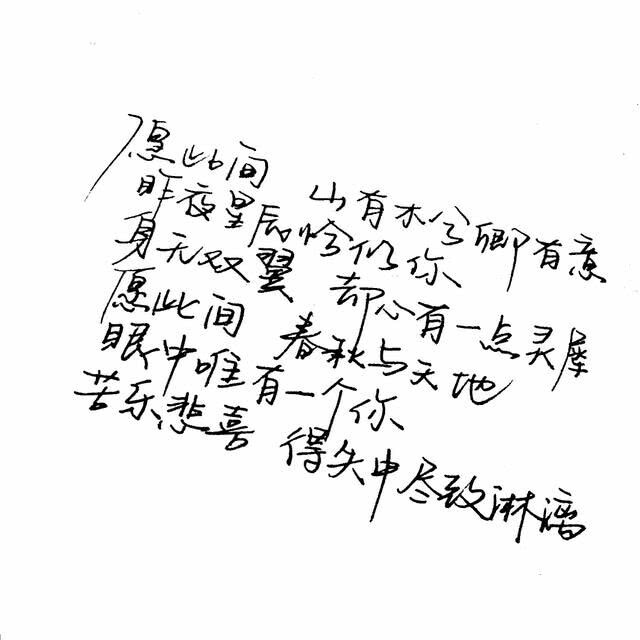 愿此间 山有木兮卿有意
昨夜星辰恰似你
身无双翼 却心有一点灵犀
愿此间 春秋与天地
眼中唯有一个你
苦乐悲喜 得失中尽致淋漓